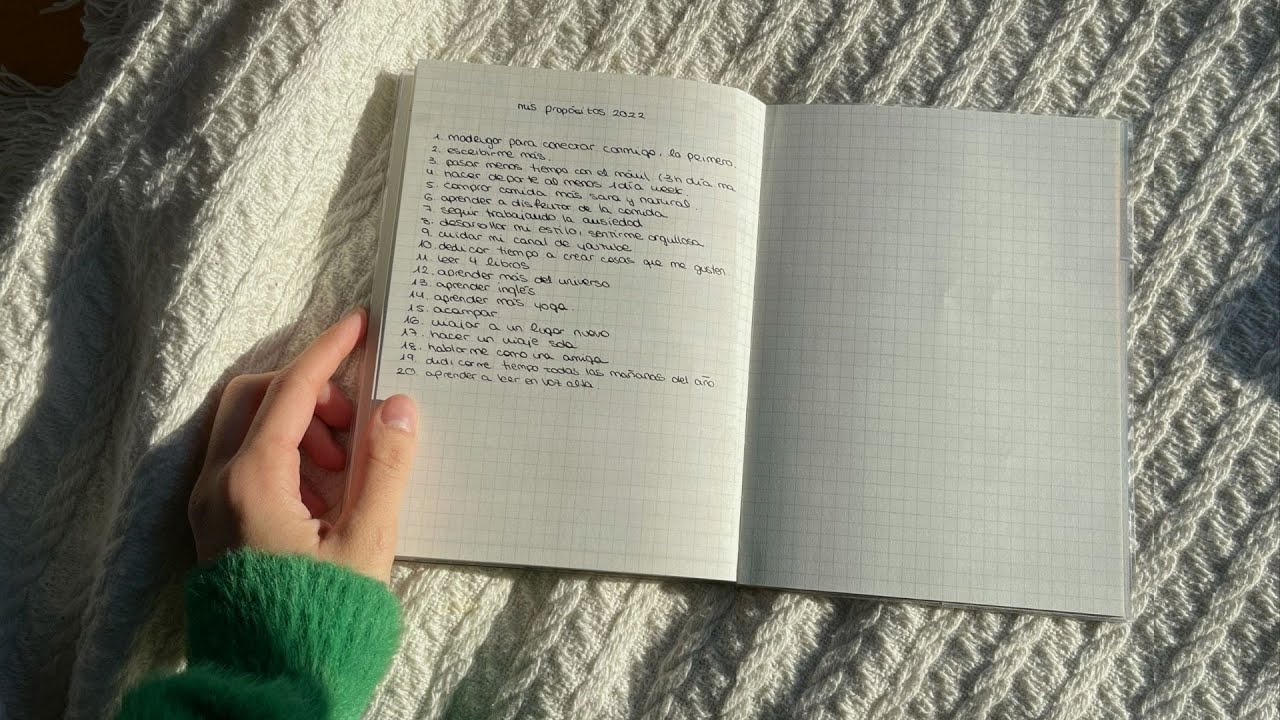 mis propósitos 2022
1. madrugar para conectar conmigo, la primera.
2. escribirme más.
3. pasar menos tiempo con el móvil (-3h día ma
4. hacer deporte al menos 1 día week
5. comprar comida más sana y natural.
6. aprender a disfrutar de la comida
7. seguir trabajando la ansiedad
8. desarrollar mi estilo, sentirme orgullosa
9. cuidar mi canal de youtube
10. dedicar tiempo a crear cosas que me gusten
11. leer 4 libros
12. aprender más del universo
13. aprender inglés
14. aprender más yoga.
15. acampar
16. viajar a un lugar nuevo
17. hacer un viaje sola
18. hablarme como una amiga
19. dedicarme tiempo todas las mañanas del año
20. aprender a leer en voz alta